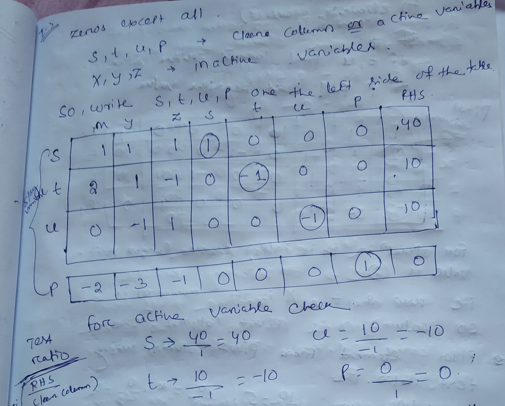 1. zeros except all.
s, t, u, p → cleare column or active variables
x, y, z → inactive variables.
So, write s, t, u, p one the left side of the table.
m y z s t u p RHS
s 1 1 1 1 0 0 0 40
t 2 1 -1 0 -1 0 0 10
u 0 -1 1 0 0 -1 0 10
p -2 -3 -1 0 0 0 1 0
for active variable check
Test ratio
s → 40/1 = 40 u = 10/-1 = -10
RHS/(clean column)
t → 10/-1 = -10 p = 0/1 = 0.